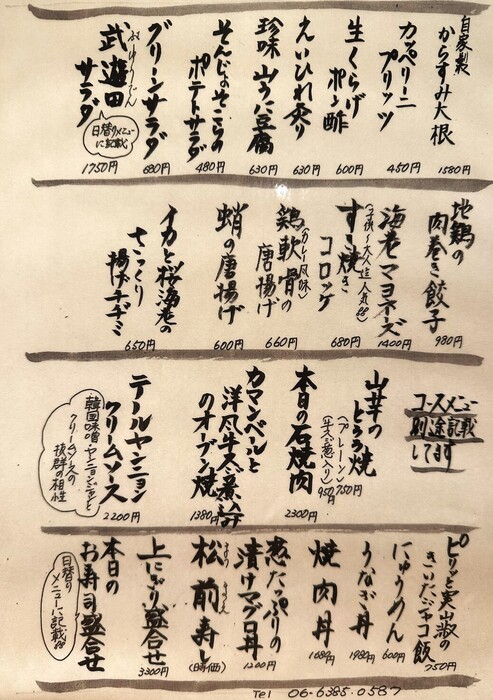 自家製
からすみ大根
1580円
カッペリーニ
フリッツ
450円
生くらげ
ポン酢
600円
えいひれ炙り
630円
珍味山うに豆腐
630円
そんじょそこらの
ポテトサラダ
480円
グリーンサラダ
680円
武遊田
ぶゆうでん
サラダ
日替りメニュー
に記載
1750円
地鶏の
肉巻き餃子
980円
海老マヨネーズ
1400円
すき焼き
コロッケ
680円
鶏軟骨の
(カレー風味)
唐揚げ
660円
蛸の唐揚げ
600円
イカと桜海老の
さっくり
揚げチヂミ
650円
コースメニュー
別途記載
してます
山芋の
とろろ焼
(プレーン)750円
(牛スジ煮入り)950円
本日の石焼肉
2300円
カマンベールと
洋風牛スジ煮込み
のオーブン焼
1380円
テールヤンニョン
クリームソース
2200円
韓国味噌ヤンニョンジャンと
クリームソースの
抜群の相性
ピリッと実山椒の
きいたジャコ飯
750円
にゅうめん
600円
うなぎ丼
1980円
焼肉丼
1680円
葱たっぷりの
漬けマグロ丼
1200円
松前寿し
まつまえ
(時価)
上にぎり盛合せ
3300円
本日の
お寿司盛合せ
日替り
メニューに記載!!
Tel 06-6385-0587